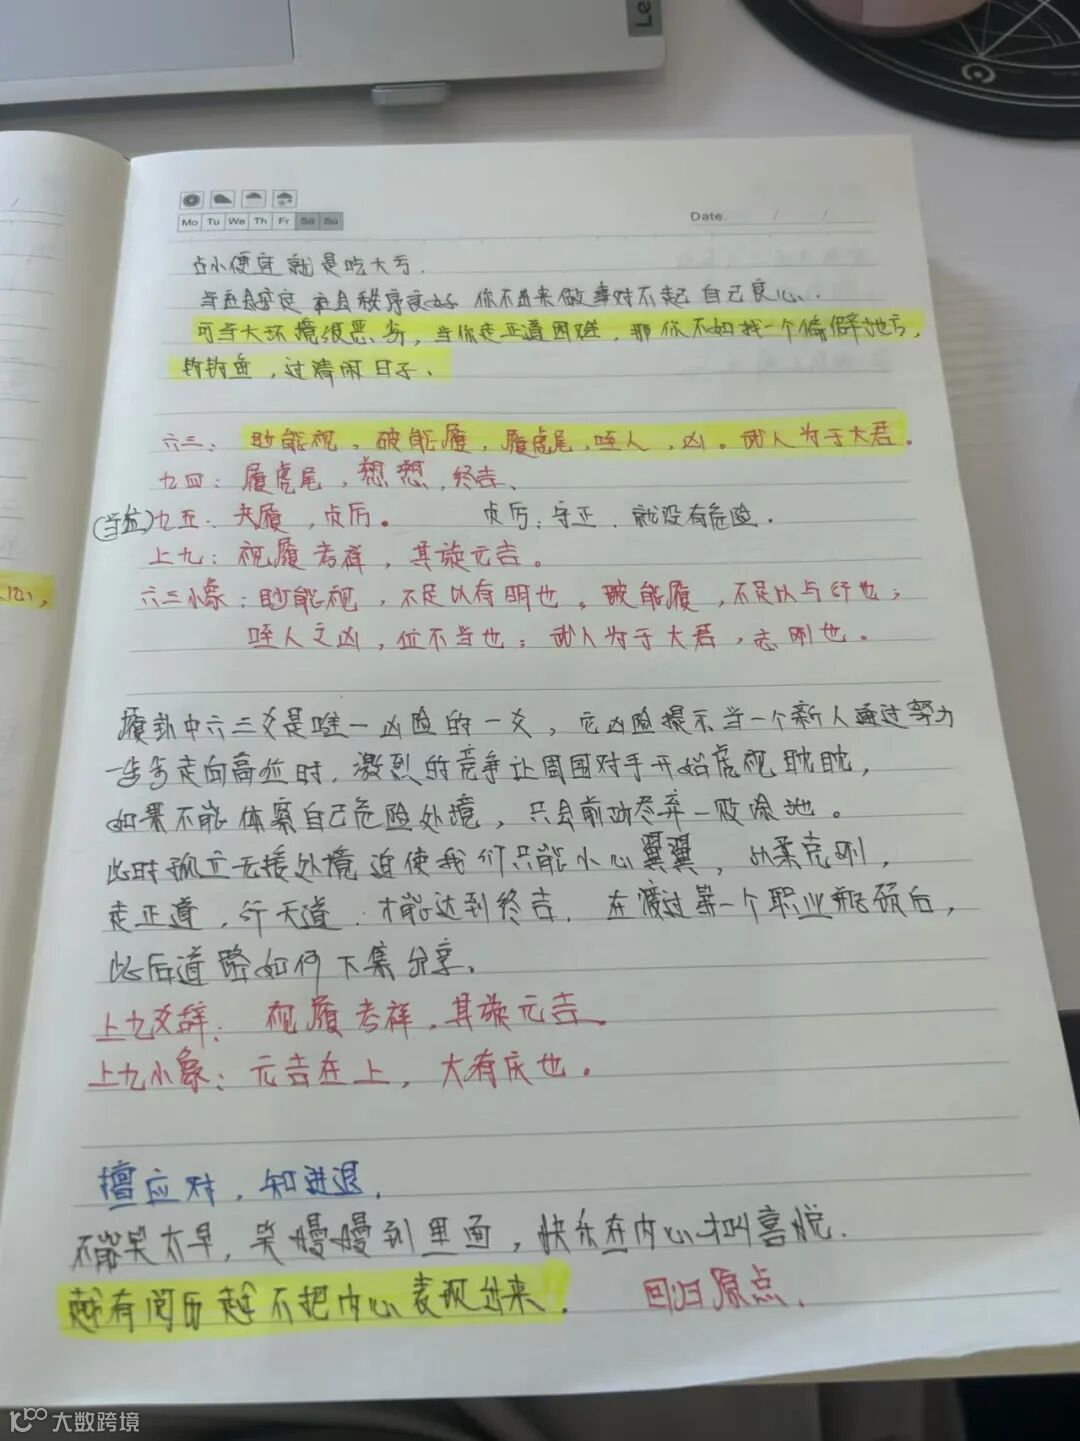 Le
Mo Tu We Th Fr Sa Su
Date. / /
占小便宜就是吃大亏.
当社会安定 社会秩序良好 你不出来做事对不起自己良心.
可当大环境很恶劣，当你走正道困难，那你不如找一个偏僻地方，
钓钓鱼，过清闲日子.
六三：眇能视，破能履，履虎尾，咥人，凶。武人为于大君。
九四：履虎尾，愬愬，终吉.
(当位)九五：夬履，贞厉。 贞厉：守正，就没有危险.
上九：视履考祥，其旋元吉。
六三小象：眇能视，不足以有明也，破能履，不足以与行也；
咥人之凶，位不当也；武人为于大君，志刚也。
履卦中六三爻是唯一凶险的一爻，它凶险提示当一个新人通过努力
一步步走向高位时，激烈的竞争让周围对手开始虎视眈眈，
如果不能体察自己危险处境，只会前功尽弃一败涂地。
此时孤立无援处境迫使我们只能小心翼翼，以柔克刚，
走正道，行天道，才能达到终吉. 在渡过第一个职业瓶颈后，
此后道路如何下集分享.
上九爻辞：视履考祥，其旋元吉。
上九小象：元吉在上，大有庆也。
擅应对，知进退.
不能笑太早，笑慢慢到里面，快乐在内心才叫喜悦.
越有阅历越不把内心表现出来. 回归原点.
心,
大数跨境